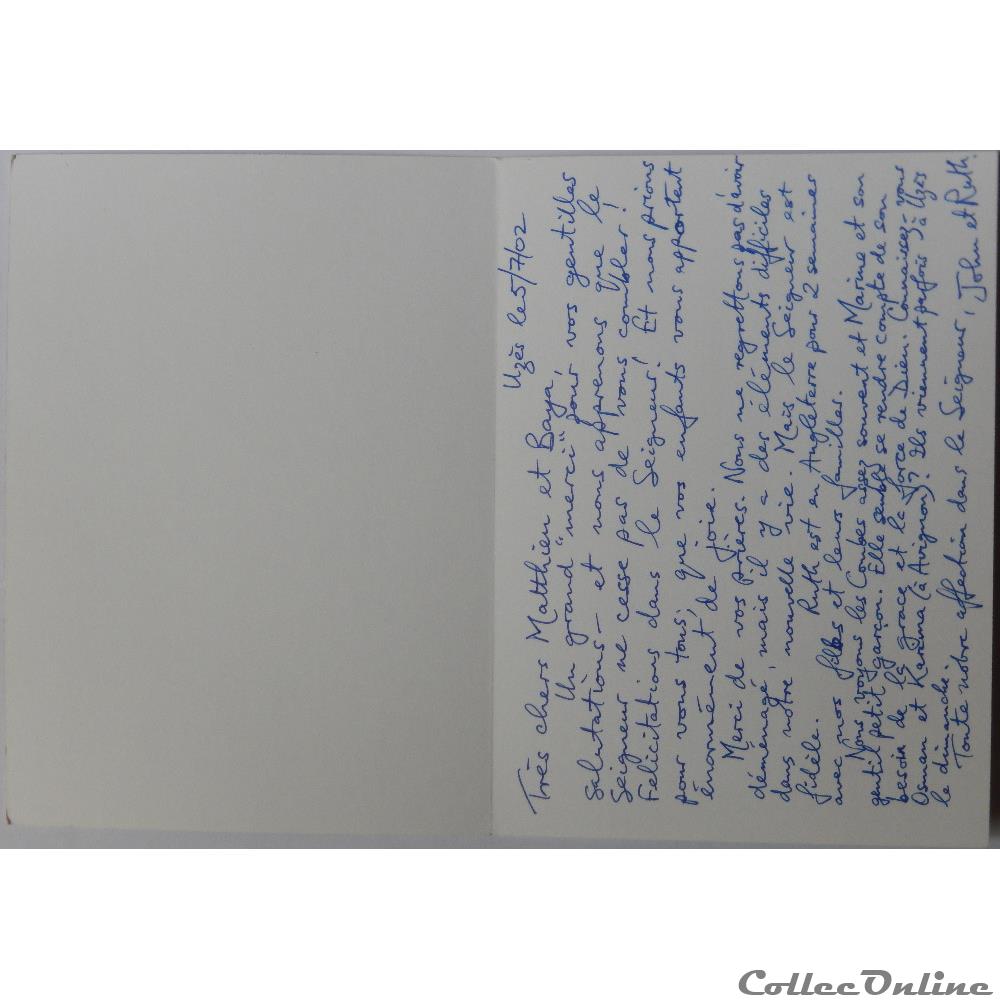 Uzès le 5/7/02
Très chers Matthieu et Baya,
Un grand "merci" pour vos gentilles
salutations – et nous apprenons que le
Seigneur ne cesse pas de vous combler!
Félicitations dans le Seigneur! Et nous prions
pour vous tous, que vos enfants vous apportent
énormément de joie.
Merci de vos prières. Nous ne regrettons pas d'avoir
déménagé, mais il y a des éléments difficiles
dans notre nouvelle vie. Mais le Seigneur est
fidèle. Ruth est en Angleterre pour 2 semaines
avec nos filles et leurs familles.
Nous voyons les Combes assez souvent et Marine et son
gentil petit garçon. Elle semble se rendre compte de son
besoin de la grace et la force de Dieu. Connaissez-vous
Osman et Karima (à Avignon)? Ils viennent parfois à Uzès
le dimanche.
Toute notre affection dans le Seigneur, John et Ruth.
CollecOnline